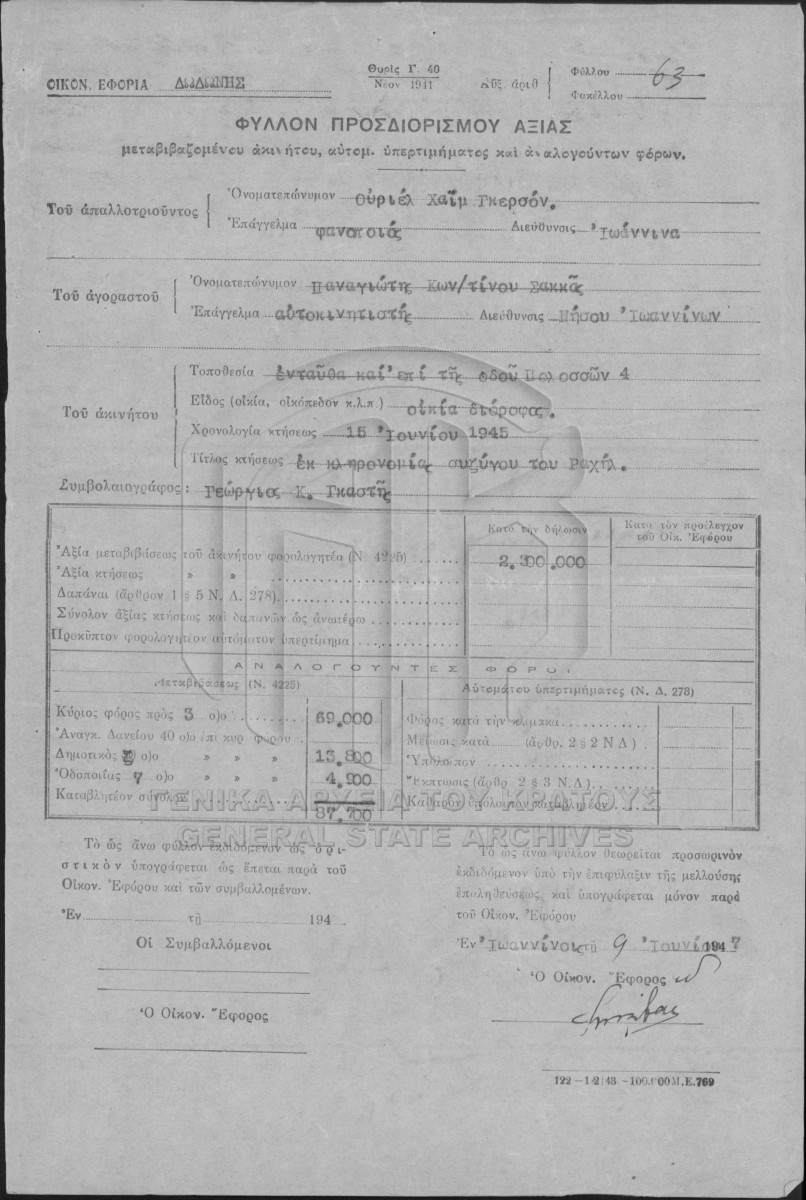 ΟΙΚΟΝ. ΕΦΟΡΙΑ ΔΩΔΩΝΗΣ
Θυρὶς Γ. 40
Νέον 1941
Αὔξ ἀριθ
Φύλλου 63
Φακέλλου
ΦΥΛΛΟΝ ΠΡΟΣΔΙΟΡΙΣΜΟΥ ΑΞΙΑΣ
μεταβιβαζομένου ἀκινήτου, αὐτομ. ὑπερτιμήματος καὶ ἀναλογούντων φόρων.
Τοῦ ἀπαλλοτριοῦντος
Ὀνοματεπώνυμον Οὐριέλ Χαΐμ Γκερσόν.
Ἐπάγγελμα Διεύθυνσις Ἰωάννινα
Τοῦ ἀγοραστοῦ
Ὀνοματεπώνυμον Παναγιώτης Κων/τίνου Σακκᾶς
Ἐπάγγελμα αὐτοκινητιστής Διεύθυνσις Νήσου Ἰωαννίνων
Τοῦ ἀκινήτου
Τοποθεσία ἐνταῦθα καί ἐπί τῆς οδοῦ 4
Εἶδος (οἰκία, οἰκόπεδον κ.λ.π.) οἰκία διόροφος.
Χρονολογία κτήσεως 15 Ἰουνίου 1945
Τίτλος κτήσεως ἐκ κληρονομίας συζύγου του Ραχήλ.
Συμβολαιογράφος: Γεώργιος Κ. Γκαστῆς
Κατὰ τὴν δήλωσιν
Κατὰ τὸν προέλεγχον τοῦ Οἰκ. Ἐφόρου
Ἀξία μεταβιβάσεως τοῦ ἀκινήτου φορολογητέα (Ν. 4225) 2.300.000
Ἀξία κτήσεως » »
Δαπάναι (ἄρθρον 1 § 5 Ν. Δ. 278)
Σύνολον ἀξίας κτήσεως καὶ δαπανῶν ὡς ἀνωτέρω
Προκῦπτον φορολογητέον αὐτόματον ὑπερτίμημα
ΑΝΑΛΟΓΟΥΝΤΕΣ ΦΟΡΟΙ
Μεταβιβάσεως (Ν. 4225)
Αὐτομάτου ὑπερτιμήματος (Ν. Δ. 278)
Κύριος φόρος πρὸς 3 ο)ο 69.000
Ἀναγκ. Δανείου 40 ο)ο ἐπὶ κυρ φόρου
Δημοτικὸς ο)ο » » » 13.800
Ὁδοποιΐας 7 ο)ο » » » 4.900
Καταβλητέον σύνολον 87.700
Φόρος κατὰ τὴν κλίμακα
Μείωσις κατὰ (ἄρθρ. 2 § 2 Ν Δ)
Ὑπόλοιπον
Ἔκπτωσις (ἄρθρ 2 § 3 Ν.Δ.)
Καθαρὸν ὑπόλοιπον καταβλητέον
ΓΕΝΙΚΑ ΑΡΧΕΙΑ ΤΟΥ ΚΡΑΤΟΥΣ
GENERAL STATE ARCHIVES
Τὸ ὡς ἄνω φύλλον ἐκδιδόμενον ὡς ὁρι-
στικὸν ὑπογράφεται ὡς ἕπεται παρὰ τοῦ
Οἰκον. Ἐφόρου καὶ τῶν συμβαλλομένων.
Ἐν τῇ 194
Οἱ Συμβαλλόμενοι
Ὁ Οἰκον. Ἔφορος
Τὸ ὡς ἄνω φύλλον θεωρεῖται προσωρινὸν
ἐκδιδόμενον ὑπὸ τὴν ἐπιφύλαξιν τῆς μελλούσης
ἐπαληθεύσεως καὶ ὑπογράφεται μόνον παρὰ
τοῦ Οἰκον. Ἐφόρου
Ἐν Ἰωαννίνοις τῇ 9 Ἰουνίου 1947
Ὁ Οἰκον. Ἔφορος
122-1/2/43 -100.000 Μ.Ε.769